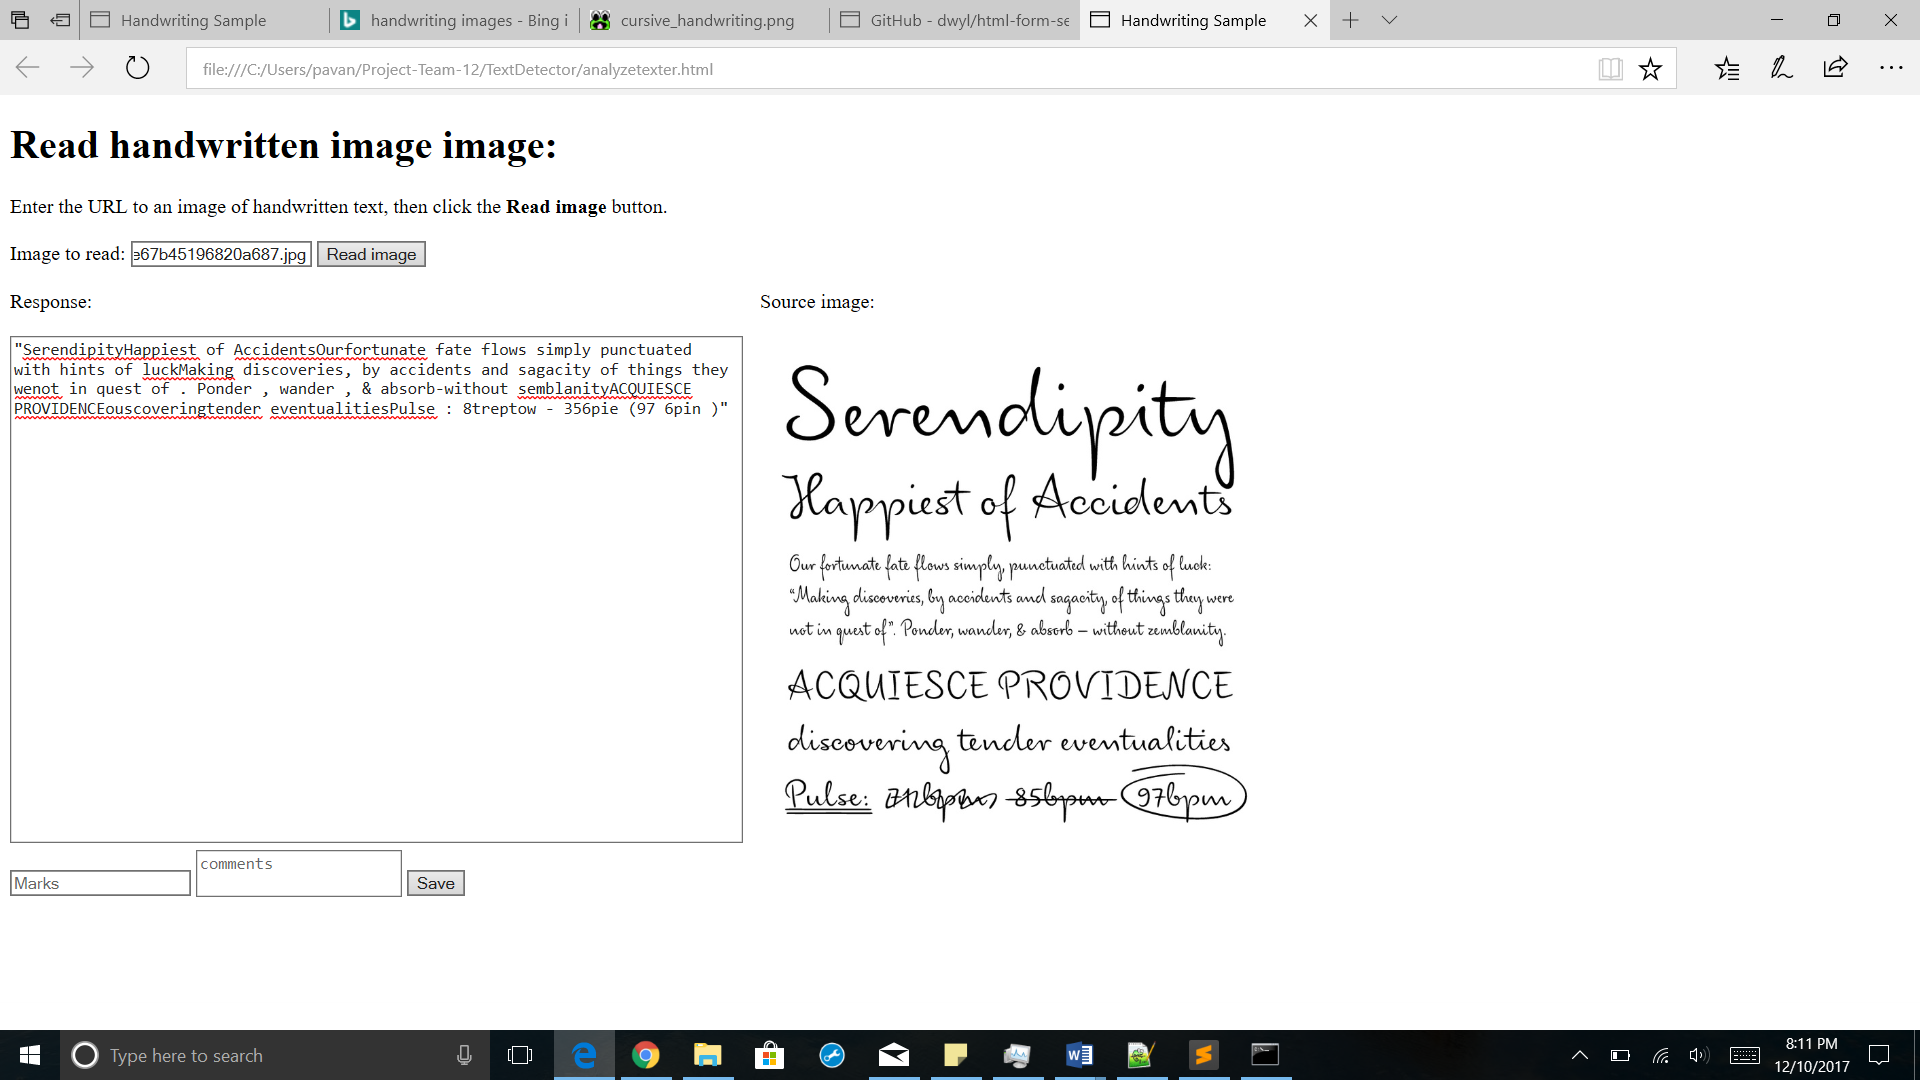 Handwriting Sample
handwriting images - Bing i
cursive_handwriting.png
GitHub - dwyl/html-form-se
Handwriting Sample
file:///C:/Users/pavan/Project-Team-12/TextDetector/analyzetexter.html
Read handwritten image image:
Enter the URL to an image of handwritten text, then click the Read image button.
Image to read: e67b45196820a687.jpg Read image
Response:
"SerendipityHappiest of AccidentsOurfortunate fate flows simply punctuated
with hints of luckMaking discoveries, by accidents and sagacity of things they
wenot in quest of . Ponder , wander , & absorb-without semblanityACQUIESCE
PROVIDENCEouscoveringtender eventualitiesPulse : 8treptow - 356pie (97 6pin )"
Marks
comments
Save
Source image:
Serendipity
Happiest of Accidents
Our fortunate fate flows simply, punctuated with hints of luck:
“Making discoveries, by accidents and sagacity, of things they were
not in quest of”. Ponder, wander, & absorb – without zemblanity.
ACQUIESCE PROVIDENCE
discovering tender eventualities
Pulse: 85bpm 97bpm
Type here to search
8:11 PM
12/10/2017